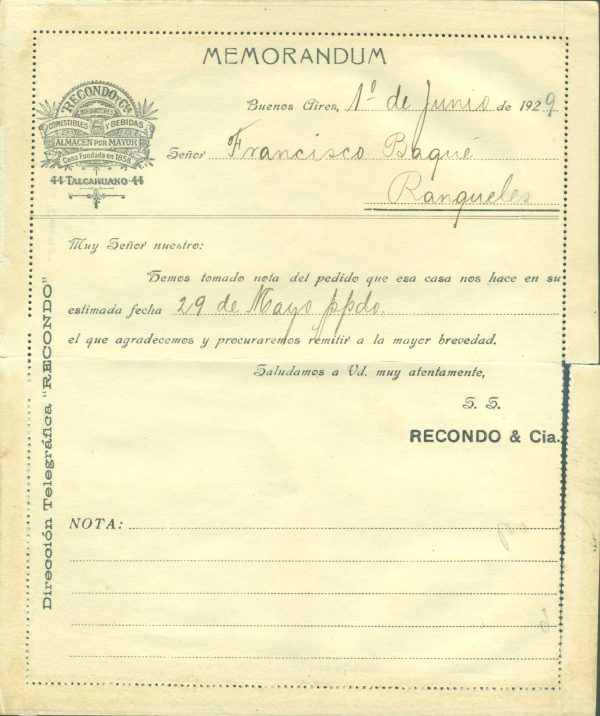 MEMORANDUM
RECONDO y Cía
IMPORTADORES
COMESTIBLES y BEBIDAS
ALMACEN POR MAYOR
Casa Fundada en 1858
44-TALCAHUANO-44
Buenos Aires, 1º de Junio de 1929
Señor Francisco Baqué
Ranqueles
Muy Señor nuestro:
Hemos tomado nota del pedido que esa casa nos hace en su
estimada fecha 29 de Mayo ppdo.
el que agradecemos y procuraremos remitir a la mayor brevedad.
Saludamos a Vd. muy atentamente,
S. S.
RECONDO & Cia.
NOTA:
Dirección Telegráfica "RECONDO"